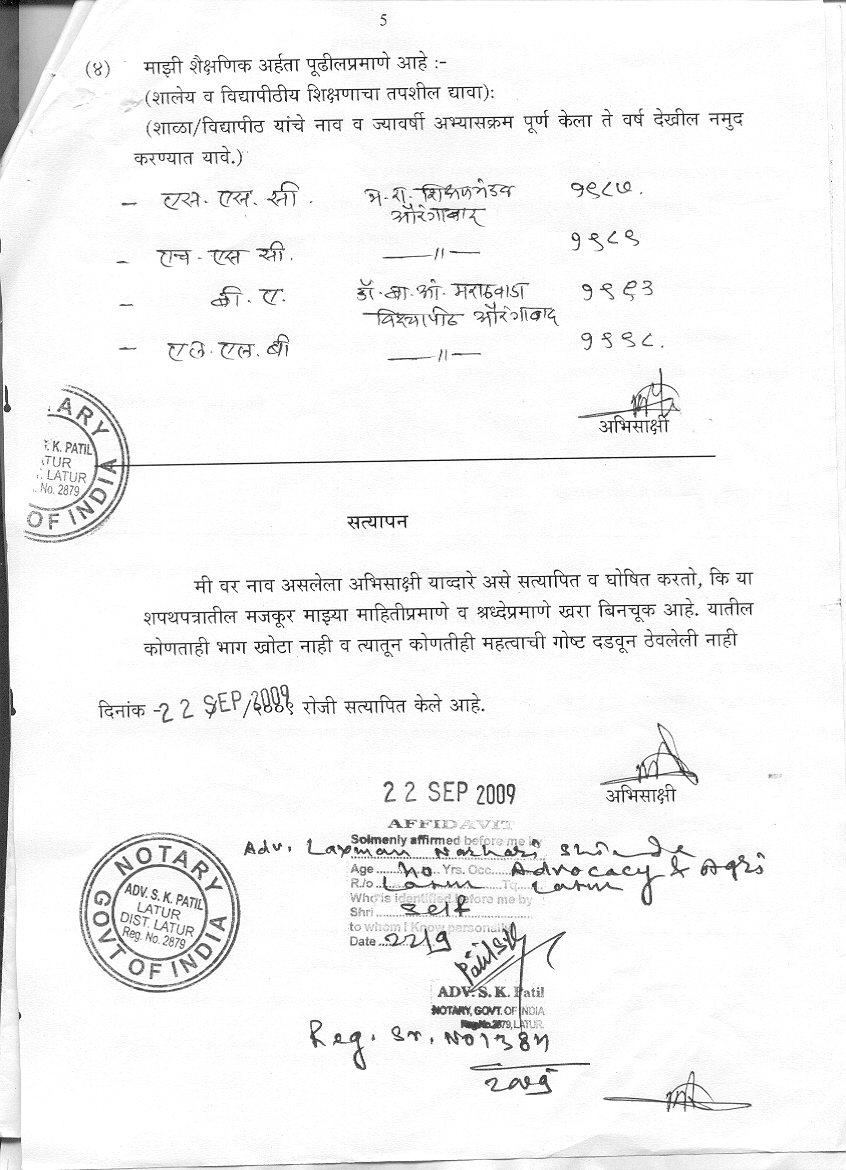 5
(४) माझी शैक्षणिक अर्हता पूढीलप्रमाणे आहे :-
(शालेय व विद्यापीठीय शिक्षणाचा तपशील द्यावा):
(शाळा/विद्यापीठ यांचे नाव व ज्यावर्षी अभ्यासक्रम पूर्ण केला ते वर्ष देखील नमुद
करण्यात यावे.)
- एस. एस. सी. म. रा. शिक्षणमंडळ १९८७.
औरंगाबाद
- एच. एस सी. —〃— १९८९
- बी. ए. डॉ. बा. आं. मराठवाडा १९९३
विद्यापीठ औरंगाबाद
- एल. एल. बी —〃— १९९८.
अभिसाक्षी
NOTARY
S. K. PATIL
LATUR
LATUR
No. 2879
OF INDIA
सत्यापन
मी वर नाव असलेला अभिसाक्षी याव्दारे असे सत्यापित व घोषित करतो, कि या
शपथपत्रातील मजकूर माझ्या माहितीप्रमाणे व श्रध्देप्रमाणे खरा बिनचूक आहे. यातील
कोणताही भाग खोटा नाही व त्यातून कोणतीही महत्वाची गोष्ट दडवून ठेवलेली नाही
दिनांक -22 SEP 2009 /२००९ रोजी सत्यापित केले आहे.
अभिसाक्षी
22 SEP 2009
AFFIDAVIT
Solmenly affirmed before me in
Adv. Laxman Narhari Shinde
Age 40 Yrs. Occ. Advocacy & Agri
R./o Latur Tq. Latur
Who is identified before me by
Shri Self
to whom i Know personally
Date 22/9
NOTARY
ADV. S. K. PATIL
LATUR
DIST. LATUR
Reg. No. 2879
GOVT OF INDIA
ADV. S. K. Patil
NOTARY, GOVT. OF INDIA
Reg No. 2879, LATUR.
Reg. Sr. No